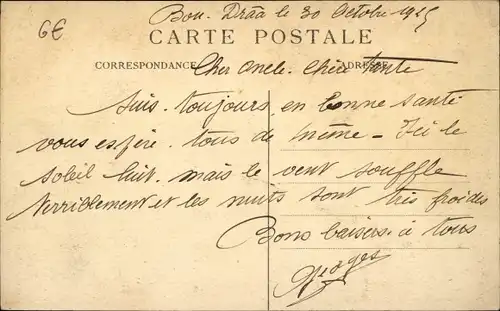 6€
Bou. Drâa le 30 Octobre 1925
CARTE POSTALE
CORRESPONDANCE ADRESSE
Cher Oncle. Chère Tante
Suis. toujours en bonne santé
vous espère. tous de même - Ici le
soleil luit. mais le vent souffle
terriblement et les nuits sont très froides
Bons baisers. à tous
Georges